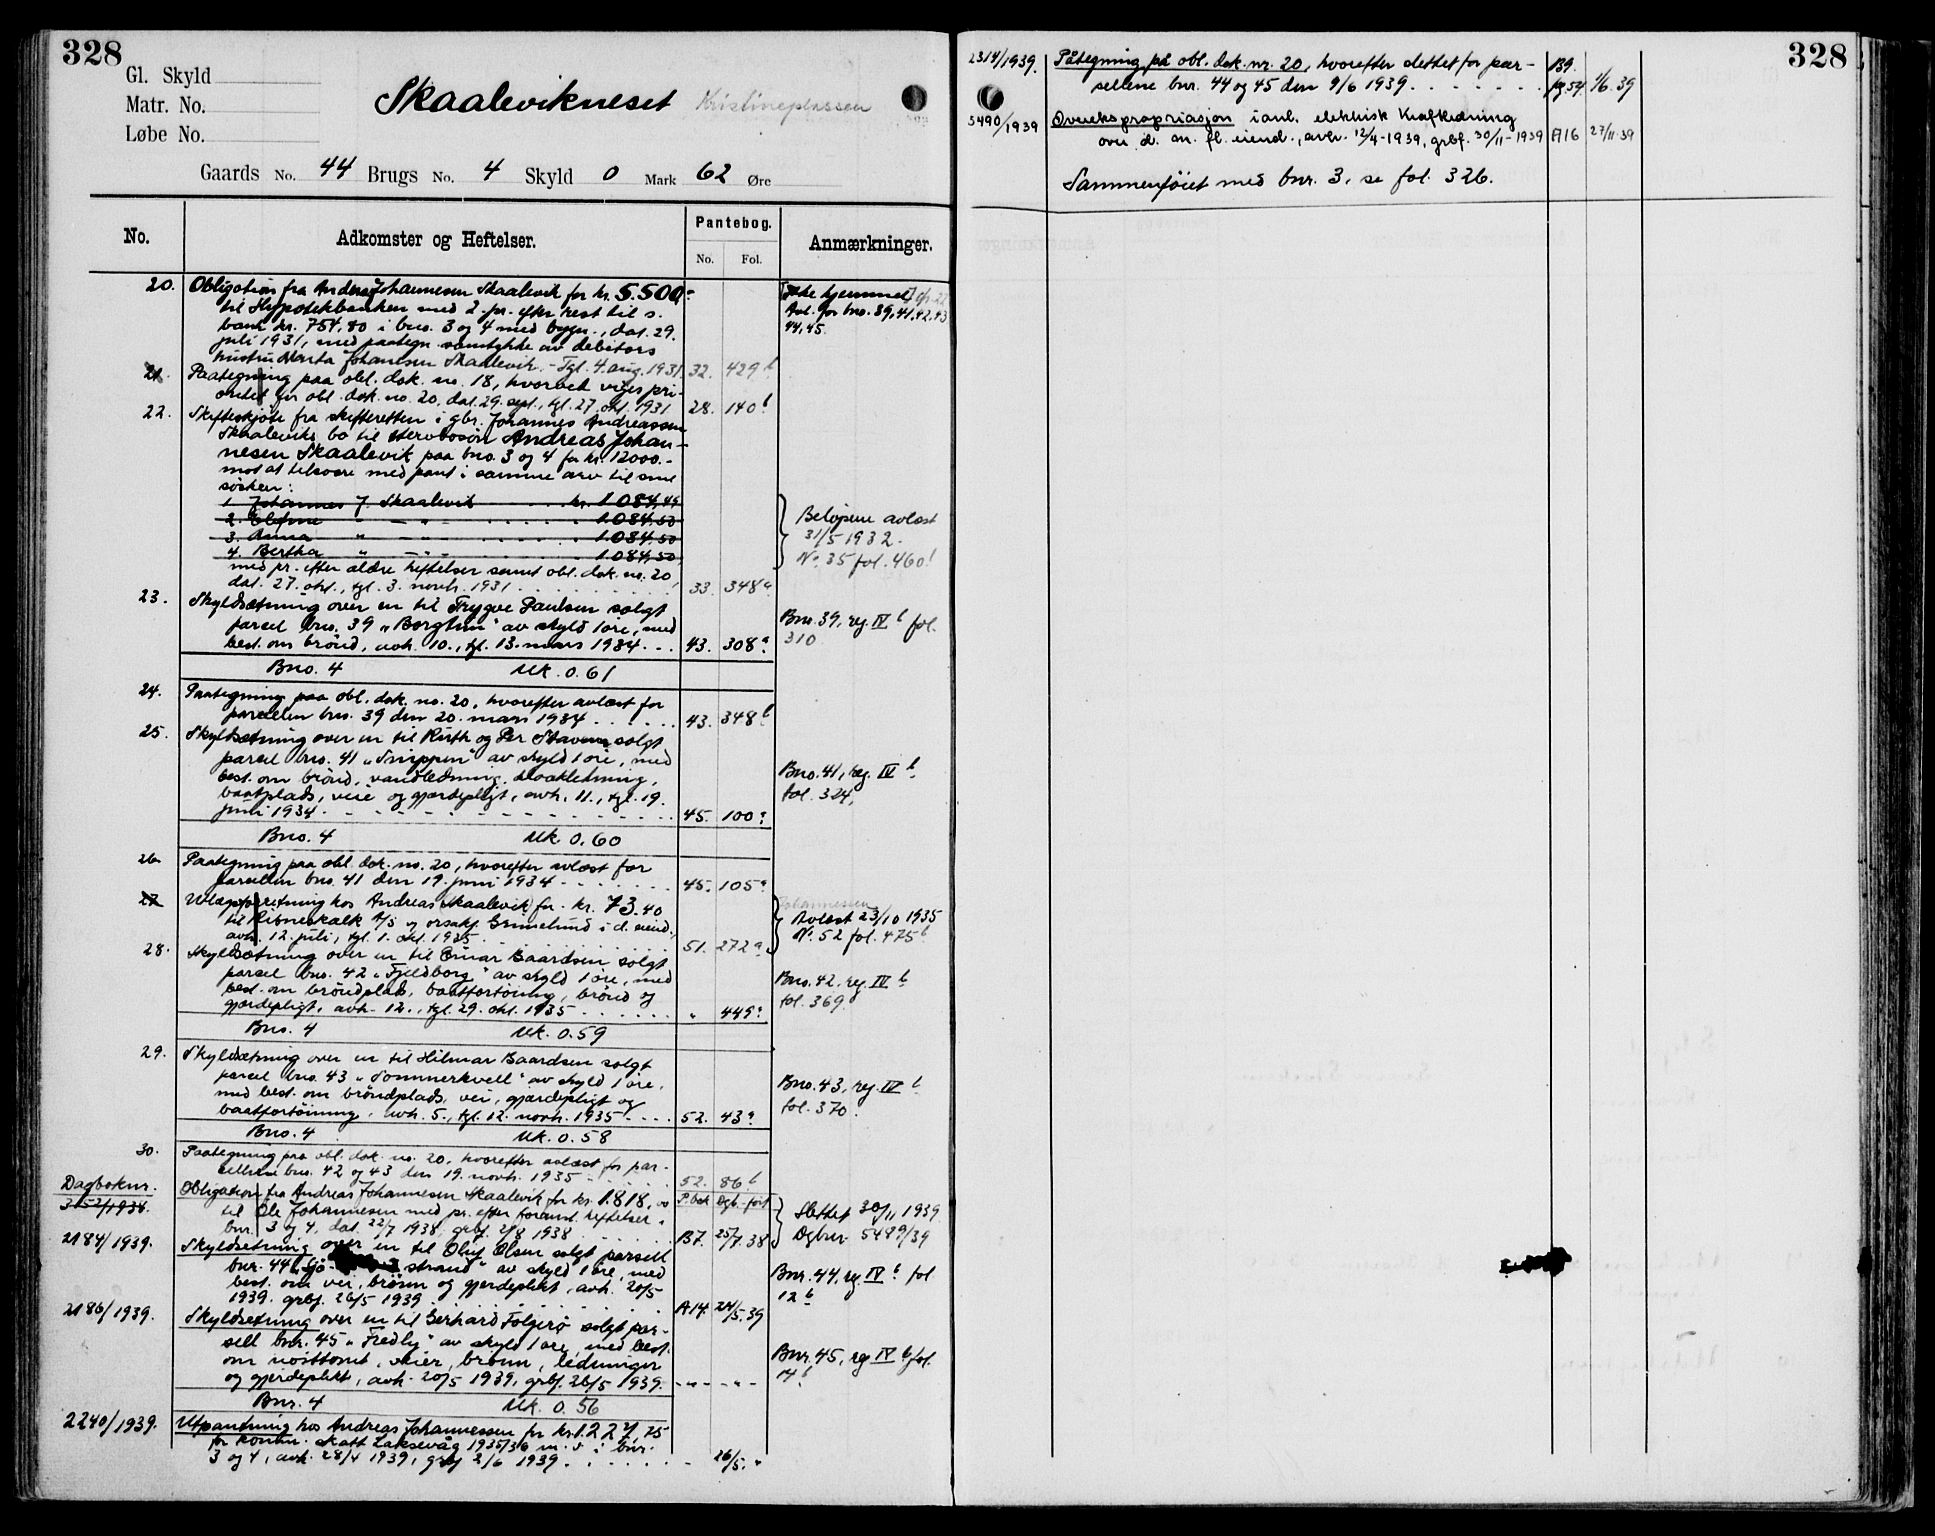 328
Gl. Skyld
Matr. No.
Løbe No.
Skaalevikneset Kristineplassen
Gaards No. 44 Brugs No. 4 Skyld 0 Mark 62 Øre
No.
Adkomster og Heftelser.
Pantebog.
No. Fol.
Anmærkninger.
20. Obligation fra Andreas Johannesen Skaalevik for kr. 5.500,-
til Hypotekbanken med 2. pr. efter rest til s.
bank kr. 754,80 i bno. 3 og 4 med bygn., dat. 29.
juli 1931, med paategn. samtykke av debitors
hustru Marta Johannesen Skaalevik. - Tgl. 4. aug. 1931. 32. 429b
Ikke hjemmel
Avl. for bno. 39, 41, 42, 43
44, 45.
21. Paategning paa obl. dok. no. 18, hvorved viges pri-
oritet for obl. dok. no. 20, dat. 29. sept., tgl. 27. okt. 1931 28. 140b
22. Skifteskjøte fra skifteretten i gbr. Johannes Andreassen
Skaaleviks bo til Hervboson Andreas Johan-
nesen Skaalevik paa bno. 3 og 4 for kr. 12000.-
mot at tilsvare med pant i samme arv til sine
søsken:
1. Johannes J. Skaalevik kr. 1084,45
2. Elfine " - " - 1084,50
3. Anna " - " - 1084,50
4. Bertha " - " - 1084,50
med pr. efter ældre heftelser samt obl. dok. no. 20,
dat. 27. okt., tgl. 3. novb. 1931 33. 348a
Beløpene avlæst
31/5 1932.
No. 35 fol. 460b
23. Skyldsætning over en til Trygve Paulsen solgt
parcel bno. 39 „Borgtun" av skyld 1 øre, med
best. om brønd, avh. 10., tgl. 13. mars 1934 43. 308a
Bno. 39, reg. IV b fol.
310
Bno. 4 Mk. 0.61
24. Paategning paa obl. dok. no. 20, hvorefter avlæst for
parcellen bno. 39 den 20. mars 1934 43. 348b
25. Skyldsætning over en til Ruth og Per Stavenes solgt
parcel bno. 41 „Snippen" av skyld 1 øre, med
best. om brønd, vandledning, kloakledning,
baatplads, veie og gjerdepligt, avh. 11., tgl. 19.
juni 1934 45. 100a
Bno. 41, reg. IV b
fol. 324,
Bno. 4 Mk 0.60
26. Paategning paa obl. dok. no. 20, hvorefter avlæst for
parcellen bno. 41 den 19. juni 1934 45. 105a
27. Utlægsforretning hos Andreas Skaalevik for kr. 73.40
til Ribneskalk A/S og orsakf. Grimelund i d. eiend.
avh. 12. juli, tgl. 1. okt. 1935 51. 272a
Johannessen
Avlæst 23/10 1935
No. 52 fol. 475b
28. Skyldsætning over en til Einar Baardsen solgt
parcel bno. 42 „Fjeldborg" av skyld 1 øre, med
best. om brøndplads, baatfortøining, brønd og
gjerdepligt, avh. 12., tgl. 29. okt. 1935 " 449a
Bno. 42, reg. IV b
fol. 369
Bno. 4 Mk. 0.59
29. Skyldsætning over en til Hilmar Baardsen solgt
parcel bno. 43 „Sommerkvell" av skyld 1 øre,
med best. om brøndplads, vei, gjærdepligt og
baatfortøining, avh. 5., tgl. 12. novb. 1935 52. 43a
Bno. 43, reg. IV b
fol. 370.
Bno. 4 Mk. 0.58
30. Paategning paa obl. dok. no. 20, hvorefter avlæst for par-
cellene bno. 42 og 43 den 19. novb. 1935 52. 86b
Dagboknr. P.bok Dgb.ført
3152/1938. Obligation fra Andreas Johannesen Skaalevik for kr. 1.818,00
til Ole Johannesen med pr. efter forannt. heftelser i
bnr. 3 og 4, dat. 22/7 1938, grbf. 2/8 1938 B7. 25/7.38
Slettet 30/11 1939
Dgbnr. 5489/39
2184/1939. Skyldsetning over en til Oluf Olsen solgt parsell
bnr. 44 „Sjø- strand" av skyld 1 øre, med
best. om vei, brønn og gjerdeplikt, avh. 20/5
1939. grbf. 26/5 1939 A14. 24/5.39
Bnr. 44, reg. IV b fol
12b
2186/1939. Skyldsetning over en til Gerhard Folgerø solgt par-
sell bnr. 45 „Fredly" av skyld 1 øre, med best.
om nosttomt, veier, brønn, ledninger
og gjerdeplikt, avh. 20/5 1939, grbf. 26/5 1939. - " - - " -
Bnr. 45, reg IV b fol.
14b
Bnr. 4 Mk. 0.56
2240/1939. Utpantning hos Andreas Johannessen for kr. 1.227,75
for komm. skatt Laksevåg 1935/36 m. v. i bnr.
3 og 4, avh. 28/4 1939, grbf 2/6 1939 - 26/5. "
328
2314/1939. Påtegning på obl. dok. nr. 20, hvorefter slettet for par-
sellene bnr. 44 og 45 den 9/6 1939 B9. pg. 54 1/6.39
5490/1939 Overekspropriasjon i anl. elektrisk kraftledning
over d. an. fl. eiend., avh. 12/4-1939, grbf. 30/11-1939 A16 27/11.39
Sammenføiet med bnr. 3, se fol. 326.